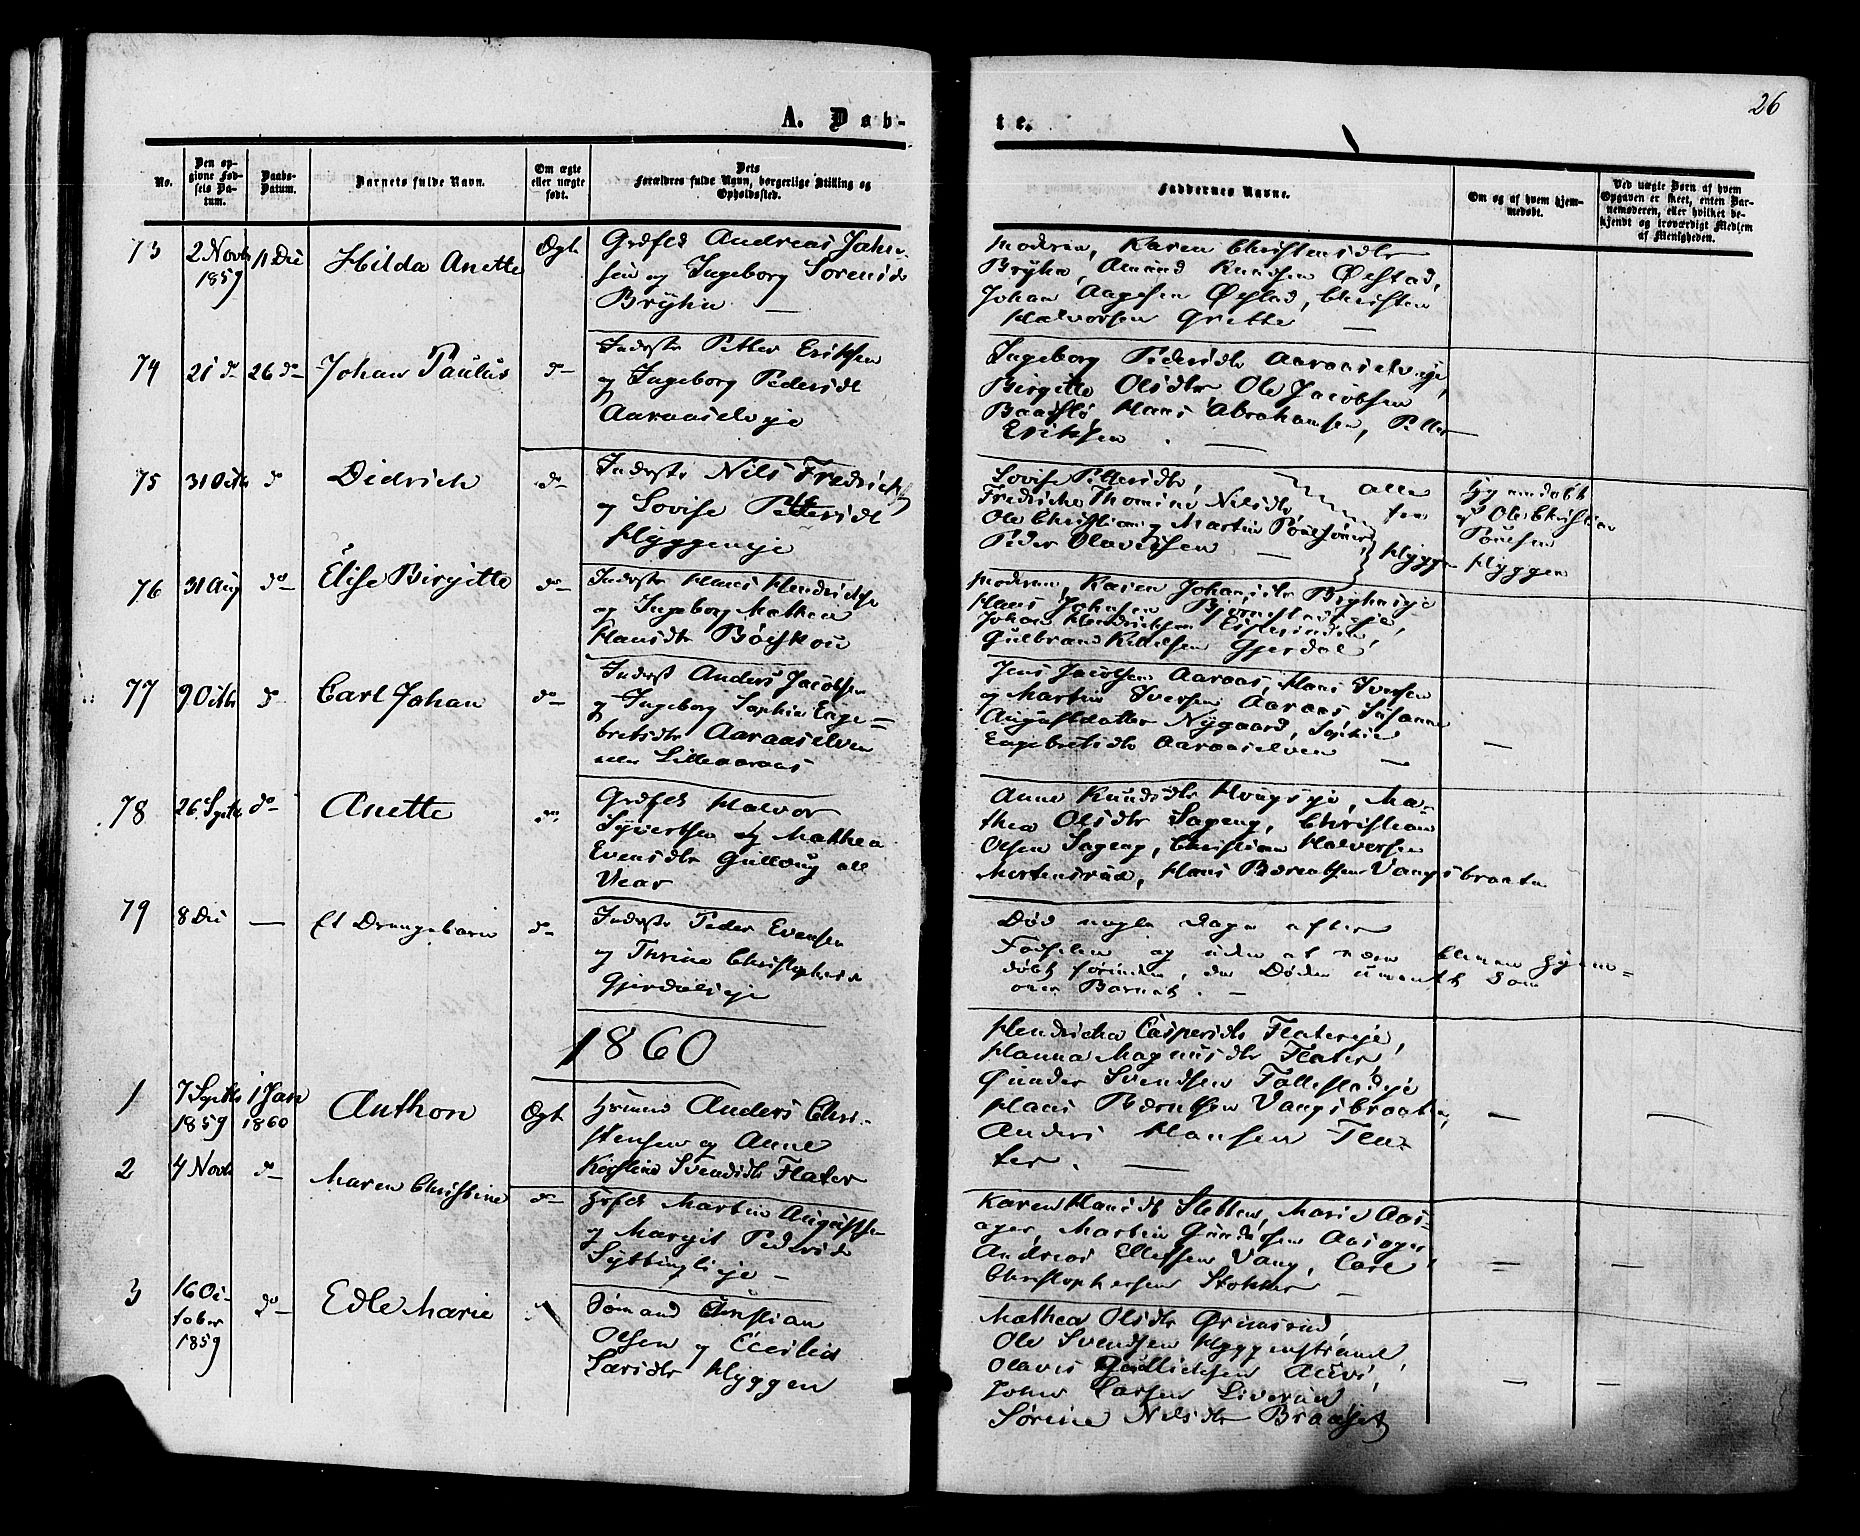 26
A. Døb-
te.
No.
Den op-
givne Fød-
sels Da-
tum.
Daabs-
Datum.
Barnets fulde Navn.
Om ægte
eller uægte
født.
Dets
Forældres fulde Navn, borgerlige Stilling og
Opholdssted.
Faddernes Navne.
Om og af hvem hjem-
medøbt.
Ved uægte Børn af hvem
Opgaven er skeet, enten Bar-
nemoderen, eller hvilket be-
kjendt og troværdigt Medlem
af Menigheden.
73
2 Novb
1859
11 Dec
Hilda Anette
Ægt
Andreas Johan-
sen og Ingeborg Sørensdr
Bryhn —
Moderen, Karen Christensdtr
Bryhn, Amund Knudsen Øfstad,
Johan Aagesen Øfstad, Christen
Halvorsen Grette —
74
21 do
26 do
Johan Paulus
do
Inderst Petter Eriksen
og Ingeborg Pedersdt
Aaraaselveje
Ingeborg Pedersdtr Aaraaselveje,
Birgitte Olsdtr Ole Jacobsen
Hans Abrahamsen, Petter
Eriksen. —
75
31 Octb
do
Didrich
do
Inderst Nils Fredrichs
og Lovise Pettersdt
Hyggeneje
Lovise Pettersdtr,
Fredricke Thomine Nilsdtr,
Ole Christian og Martin Poulsønner,
Peder Olavessen —
alle
fra
Hyggen
Hjemdøbt
af Ole Christian
Poulsen
Hyggen
76
31 Aug
do
Elise Birgitte
do
Inderst Hans Hendriks
og Ingeborg Mathea
Hansdtr Bøeskou
Moderen, Karen Johansdtr Bryhnseje
Hans Johnsen
Johan Hendriksen
Gulbrand Kittelsen Gjerdal
77
9 Octb
do
Carl Johan
do
Inderst Anders Jacobsen
og Ingeborg Sophie Enge=
bretsdtr Aaraaselven
Lilleaaraas
Jens Jacobsen Aaraas, Hans Iversen
og Martin Iversen Aaraas Susanne
Augustdatter Nygaard, Sophie
Engebretsdtr Aaraaselven —
—
78
26 Septb
do
Anette
do
Halvor
Syvertsen og Mathea
Evensdtr Gullaug
Anne Knudsdtr Hougseje, Ma-
thea Olsdtr Sageng, Christian
Olsen Sageng, Christian Halvorsen
Mortensrud, Hans Berntsen Vangsbraaten
79
8 Dec
—
Et Drengebarn
do
Inderst Peder Evensen
og Thrine Christophersdt
Gjerdalseje
Død nogle Dage efter
Fødselen og uden at være bleven hjem=
døbt forinden, da Døden
over Barnet. —
1860
1
7 Septbr
1859
1 Jan
1860
Anthon
Ægt
Anders Chri-
stensen og Anne
Kirstine Svendsdtr Flater
Hendricka Caspersdtr Flatereje,
Hanna Magnusdtr Flater
Gunder Svendsen Tollefsladeje
Hans Berntsen Vangsbraaten,
Anders Hansen Fla-
ter. —
—
—
2
4 Novb
do
Maren Christine
do
Martin Augustsen
og Margit Pedersdt
Syttinglieje —
Karen Hansdt Sletten, Marie Aas-
ager, Martin Gundersen Aasager
Andreas Ellefsen Vang, Carl
Christophersen Stokker —
—
—
3
16 Oc-
tober
1859
do
Edle Marie
Sømand Christian
Olsen og Cecilia
Larsdtr Hyggen
Mathea Olsdtr Grimsrud,
Ole Svendsen Hyggenstrand
Olaves Gulliksen Auvi,
Johan Larsen Liverud
Sørine Nilsdtr
—
—